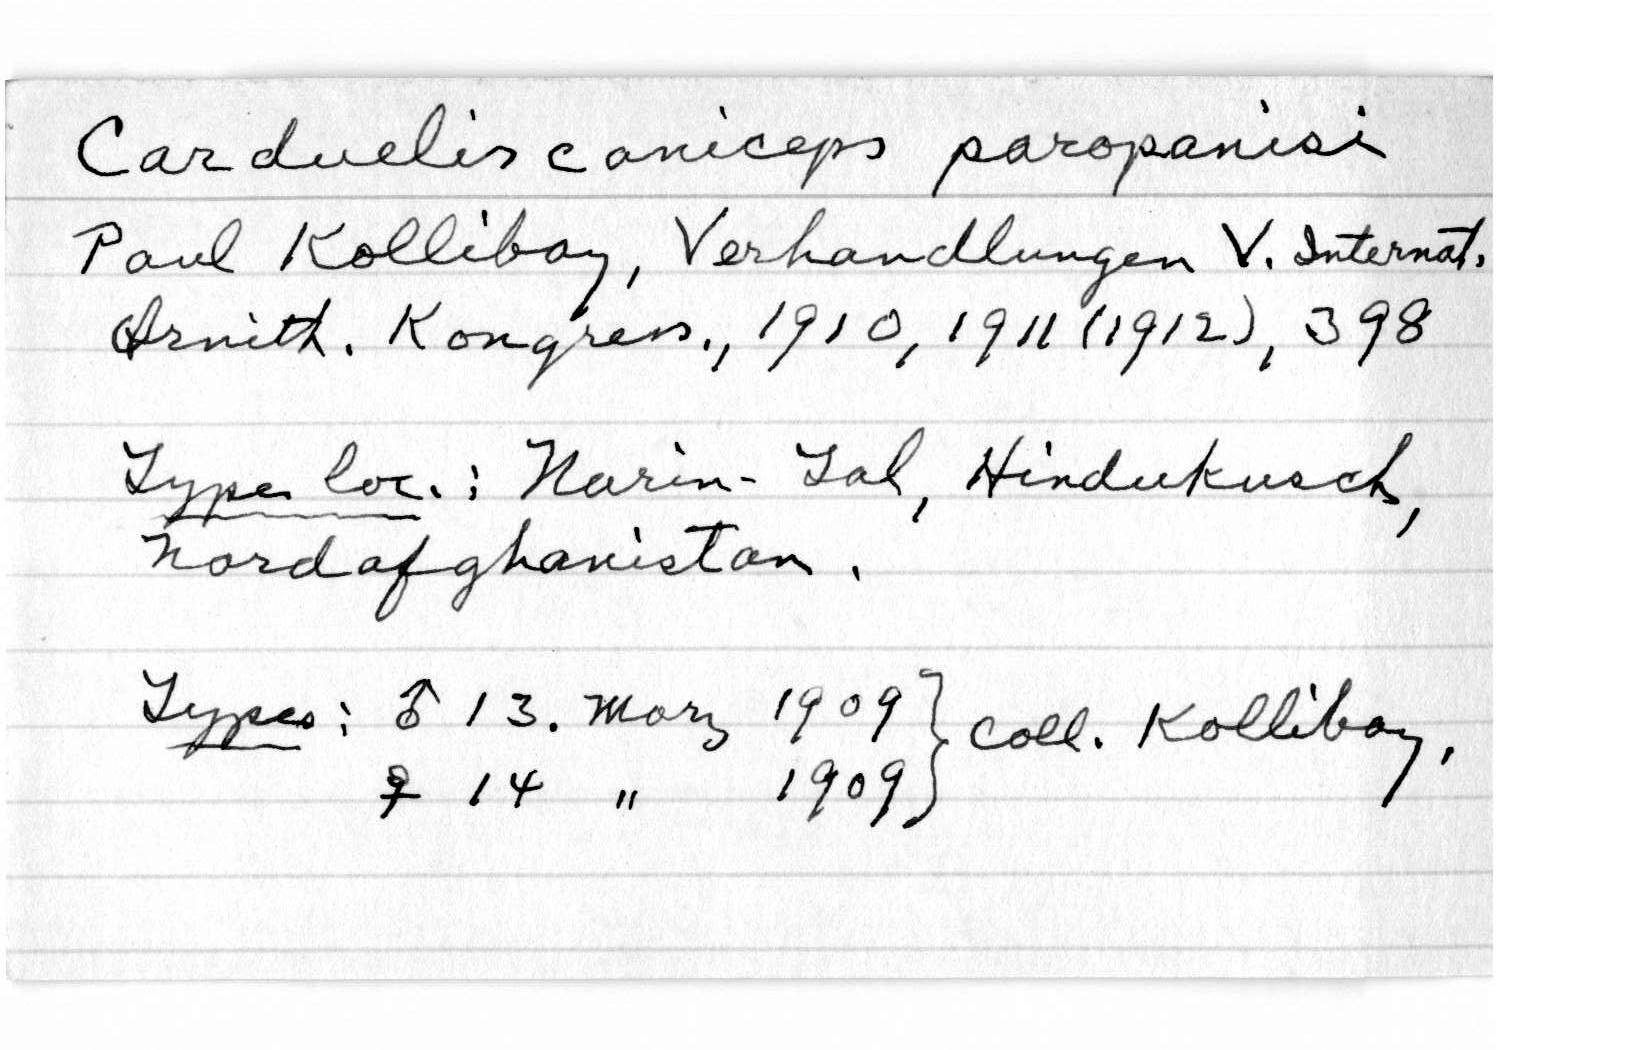 Carduelis caniceps paropanisi
Paul Kollibay, Verhandlungen V. Internat.
Ornith. Kongress., 1910, 1911 (1912), 398
Type loc.: Narin-Tal, Hindukusch,
Nordafghanistan.
Types: ♂ 13. März 1909 } coll. Kollibay.
♀ 14 " 1909